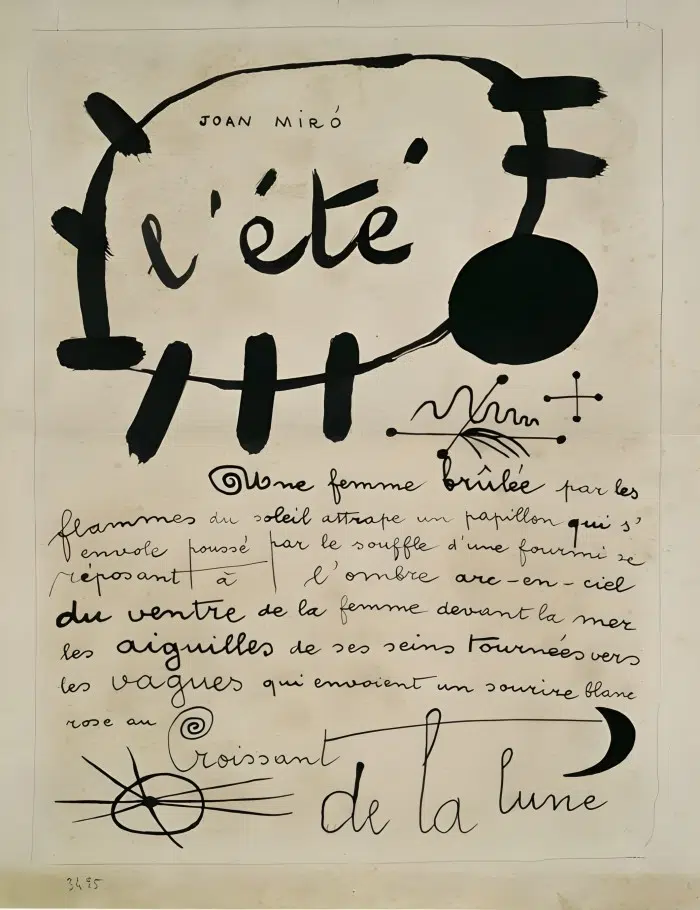 JOAN MIRÓ
l'été
Une femme brûlée par les
flammes du soleil attrape un papillon qui s'
envole poussé par le souffle d'une fourmi se
réposant à l'ombre arc-en-ciel
du ventre de la femme devant la mer
les aiguilles de ses seins tournées vers
les vagues qui envoient un sourire blanc
rose au
Croissant
de la lune
3495